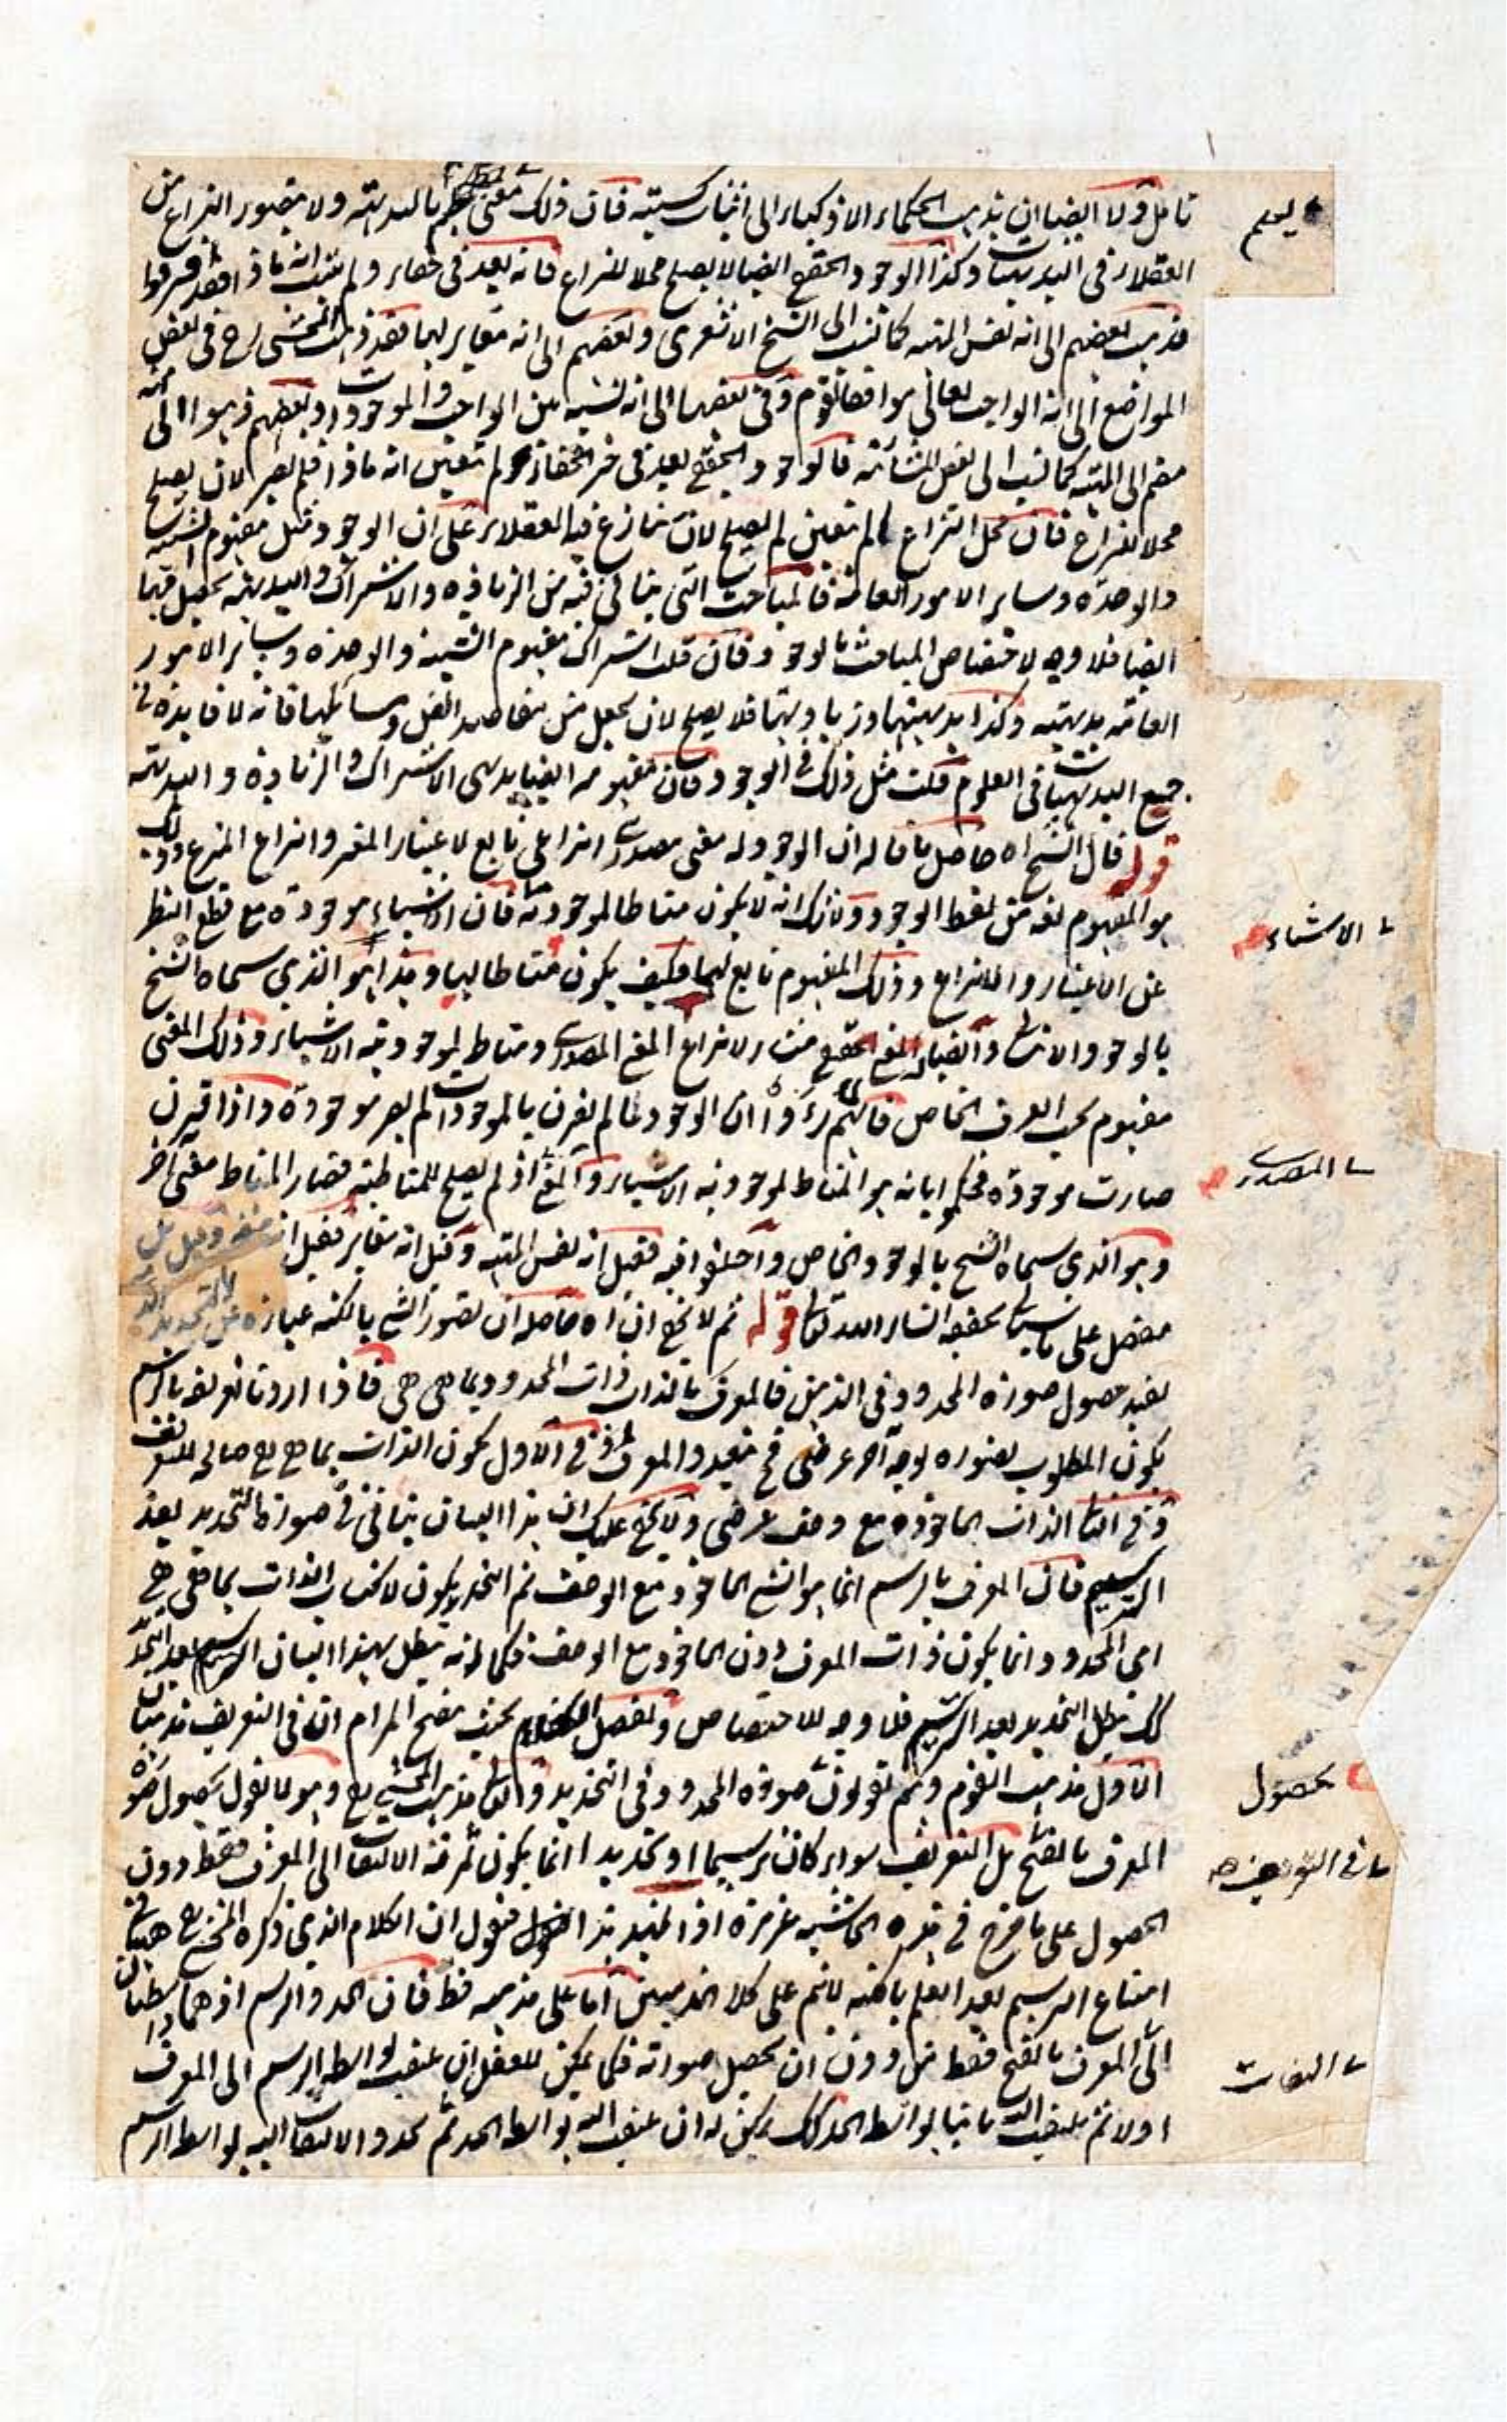 تأمل ولا ايضا ان يذهب الحكماء الاذكياء الى اثبات كسبيته فان ذلك معنى يعلم بالبديهة ولا يتصور النزاع من
العقلاء في البديهيات وكذا الوجود الحقيقي ايضا لا يصلح محلا للنزاع فانه بعد في خفاء ولم يثبت انه ماذا فقد افترقوا
فذهب بعضهم الى انه نفس المهية كما نسب الى الشيخ الاشعري وبعضهم الى انه مغاير لها فقد ذهب المحشي رح في بعض
المواضع الى انه الواجب تعالى موافقا لقوم وفي بعضها الى انه نسبة بين الواجب والموجودات وبعضهم ذهبوا الى انه
منضم الى المهية كما نسب الى بعض المشائية فالوجود الحقيقي بعد في حيز الخفاء ولم يتعين انه ماذا فلم يصر الان يصلح
محلا للنزاع فان محل النزاع ما لم يتعين لم يصلح لان تنازع فيه العقلاء على ان الوجود مثل مفهوم الشيئية
والوحدة وساير الامور العامة فالمباحث التي يتأتى فيه من الزيادة والاشتراك والبديهة يحصل فيها
ايضا فلا وجه لاختصاص المباحث بالوجود فان قلت اشتراك مفهوم الشيئية والوحدة وساير الامور
العامة بديهية وكذا بديهيتها وزيادتها فلا يصلح لان يجعل من مقاصد الفن ومسائلها فانه لا فايدة في
جميع البديهيات في العلوم قلت مثل ذلك في الوجود فان مفهومه ايضا بديهي الاشتراك والزيادة والبديهة
قوله قال الشيخ اه حاصل ما قاله ان الوجود له معنى مصدري انتزاعي تابع لاعتبار المعتبر وانتزاع المنتزع وذلك
هو المفهوم لغة من لفظ الوجود ولا شك انه لا يكون مناطا لموجودية فان الاشياء موجودة مع قطع النظر
عن الاعتبار والانتزاع وذلك المفهوم تابع لهما فكيف يكون مناطا لها وهذا هو الذي سماه الشيخ
بالوجود الاثباتي وايضا له المعنى الحقيقي منشاء لانتزاع المعنى المصدري ومناط لموجودية الاشياء وذلك المعنى
مفهوم بحسب العرف الخاص فانهم رأوا ان الوجود ما لم يقرن بالموجودات لم يصر موجودة واذا اقترن
صارت موجودة فحكموا بانه هو المناط لموجودية الاشياء والمعنى اذ لم يصلح للمناطية فصار المناط معنى اخر
وهو الذي سماه الشيخ بالوجود الخاص واختلفوا فيه فقيل انه نفس المهية وقيل انه مغاير فقيل انه
مفصل على ما سيأتي تحقيقه انشاء الله تعالى قوله ثم لا يخفى ان اه حاصله ان تصور الشئ بالكنه عبارة عن
يفيد حصول صورة المحدود في الذهن فالمعرف بالذات ذات المحدود بما هي هي فاذا اردنا تعريفه بالرسم
يكون المطلوب تصوره بوجه اخر عرضي فح يتعدد المعرف اذ في الاول يكون الذات بما هي هي صالحة للتعريف
وفي الثاني الذات الماخوذة مع وصف عرضي ولا يخفى عليك ان هذا البيان يتأتى في صورة التحديد بعد
الترسيم فان المعرف بالرسم انما هو الشئ الماخوذ مع الوصف ثم التحديد يكون لاكتساب الذات بما هي هي
اي المحدود انما يكون ذات المعرف دون الماخوذ مع الوصف فكما انه يبطل بهذا البيان الترسيم بعد التحديد
كذلك يبطل التحديد بعد الترسيم فلا وجه للاختصاص وتفصيل الكلام بحيث يتضح المرام ان في التعريف مذهبان
الاول مذهب القوم وهم يقولون صورة المحدود في التحديد والثاني مذهب المحشي رح وهو لا يقول بحصول صورة
المعرف بالفتح بل التعريف سواء كان ترسيما او تحديدا انما يكون ثمرته الالتفات الى المعرف فقط دون
الحصول على ما صرح في هذه الحاشية غير مرة اذا تمهد هذا فنقول ان الكلام الذي ذكره المحشي رح ههنا في
امتناع الترسيم بعد العلم بالكنه لا يتم على كلا المذهبين اما على مذهبه فظ فان الحد والرسم اذ هما واسطتان
الى المعرف بالفتح فقط من دون ان يحصل صورته فكما يمكن للعقل ان يلتفت بواسطة الرسم الى المعرف
اولا ثم يلتفت اليه ثانيا بواسطة الحد كذلك يمكن له ان يلتفت اليه بواسطة الحد ثم يحدد الالتفات اليه بواسطة الرسم
يعلم
الاشياء
المصدري
بحصول
في التعريف صه
التفات